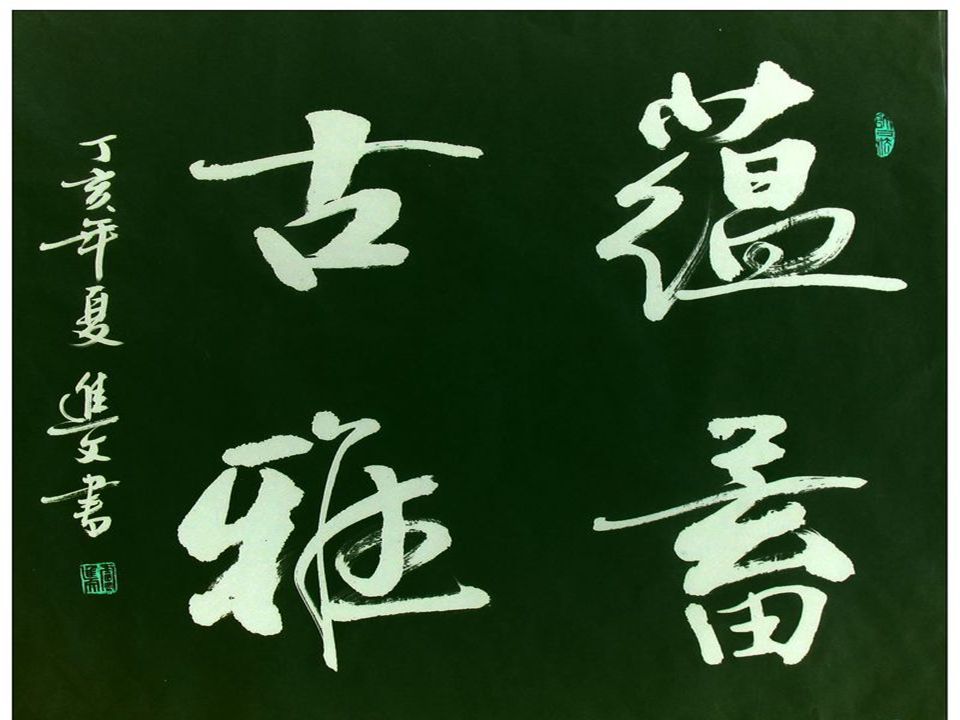 蕴蓄
古雅
丁亥年夏 進文書